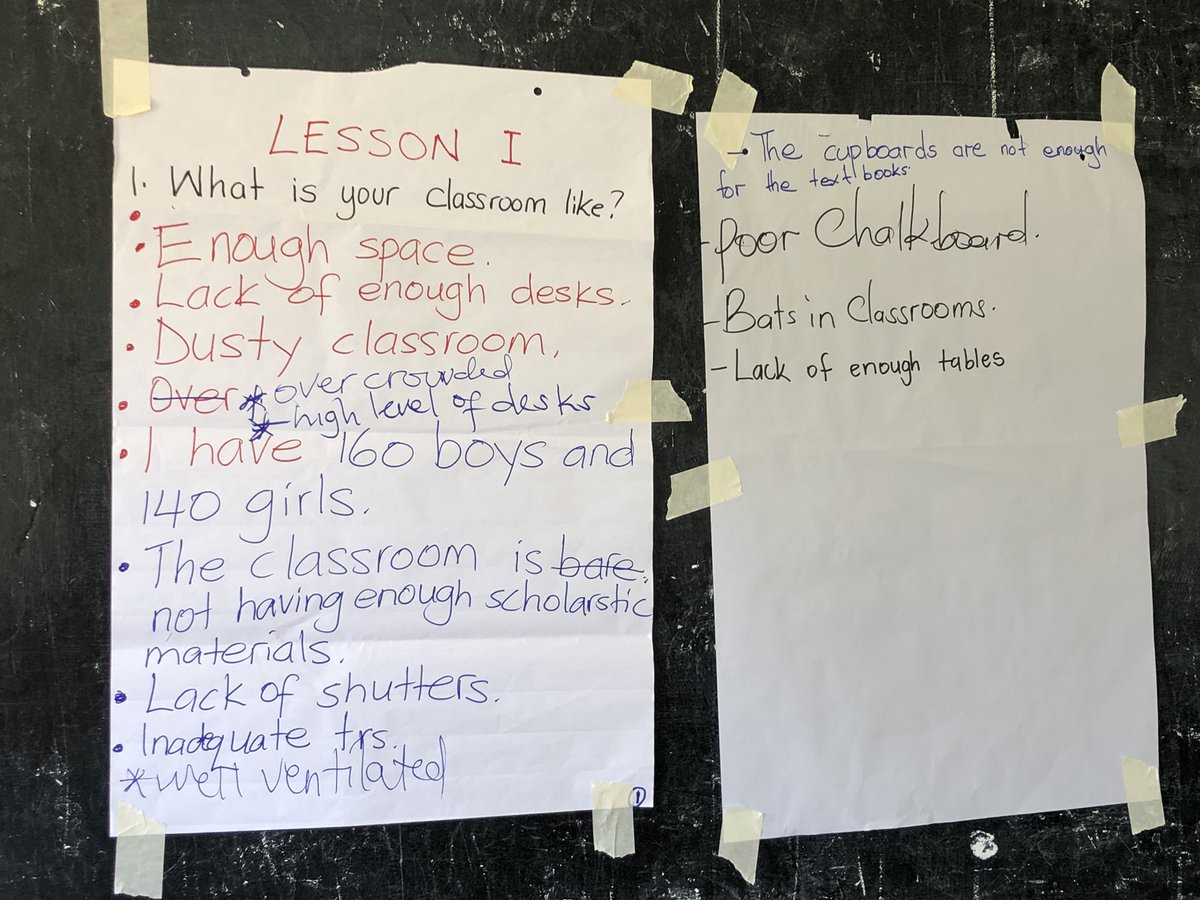 LESSON I
1. What is your classroom like?
•
• Enough space.
• Lack of enough desks.
• Dusty classroom,
• Over * over crowded
* - high level of desks
• I have 160 boys and
140 girls.
• The classroom is bare.
not having enough scholarstic
materials.
• Lack of shutters.
• Inadequate trs.
* well ventilated
1
- The cupboards are not enough
for the text books.
- Poor Chalkboard.
- Bats in Classrooms.
- Lack of enough tables